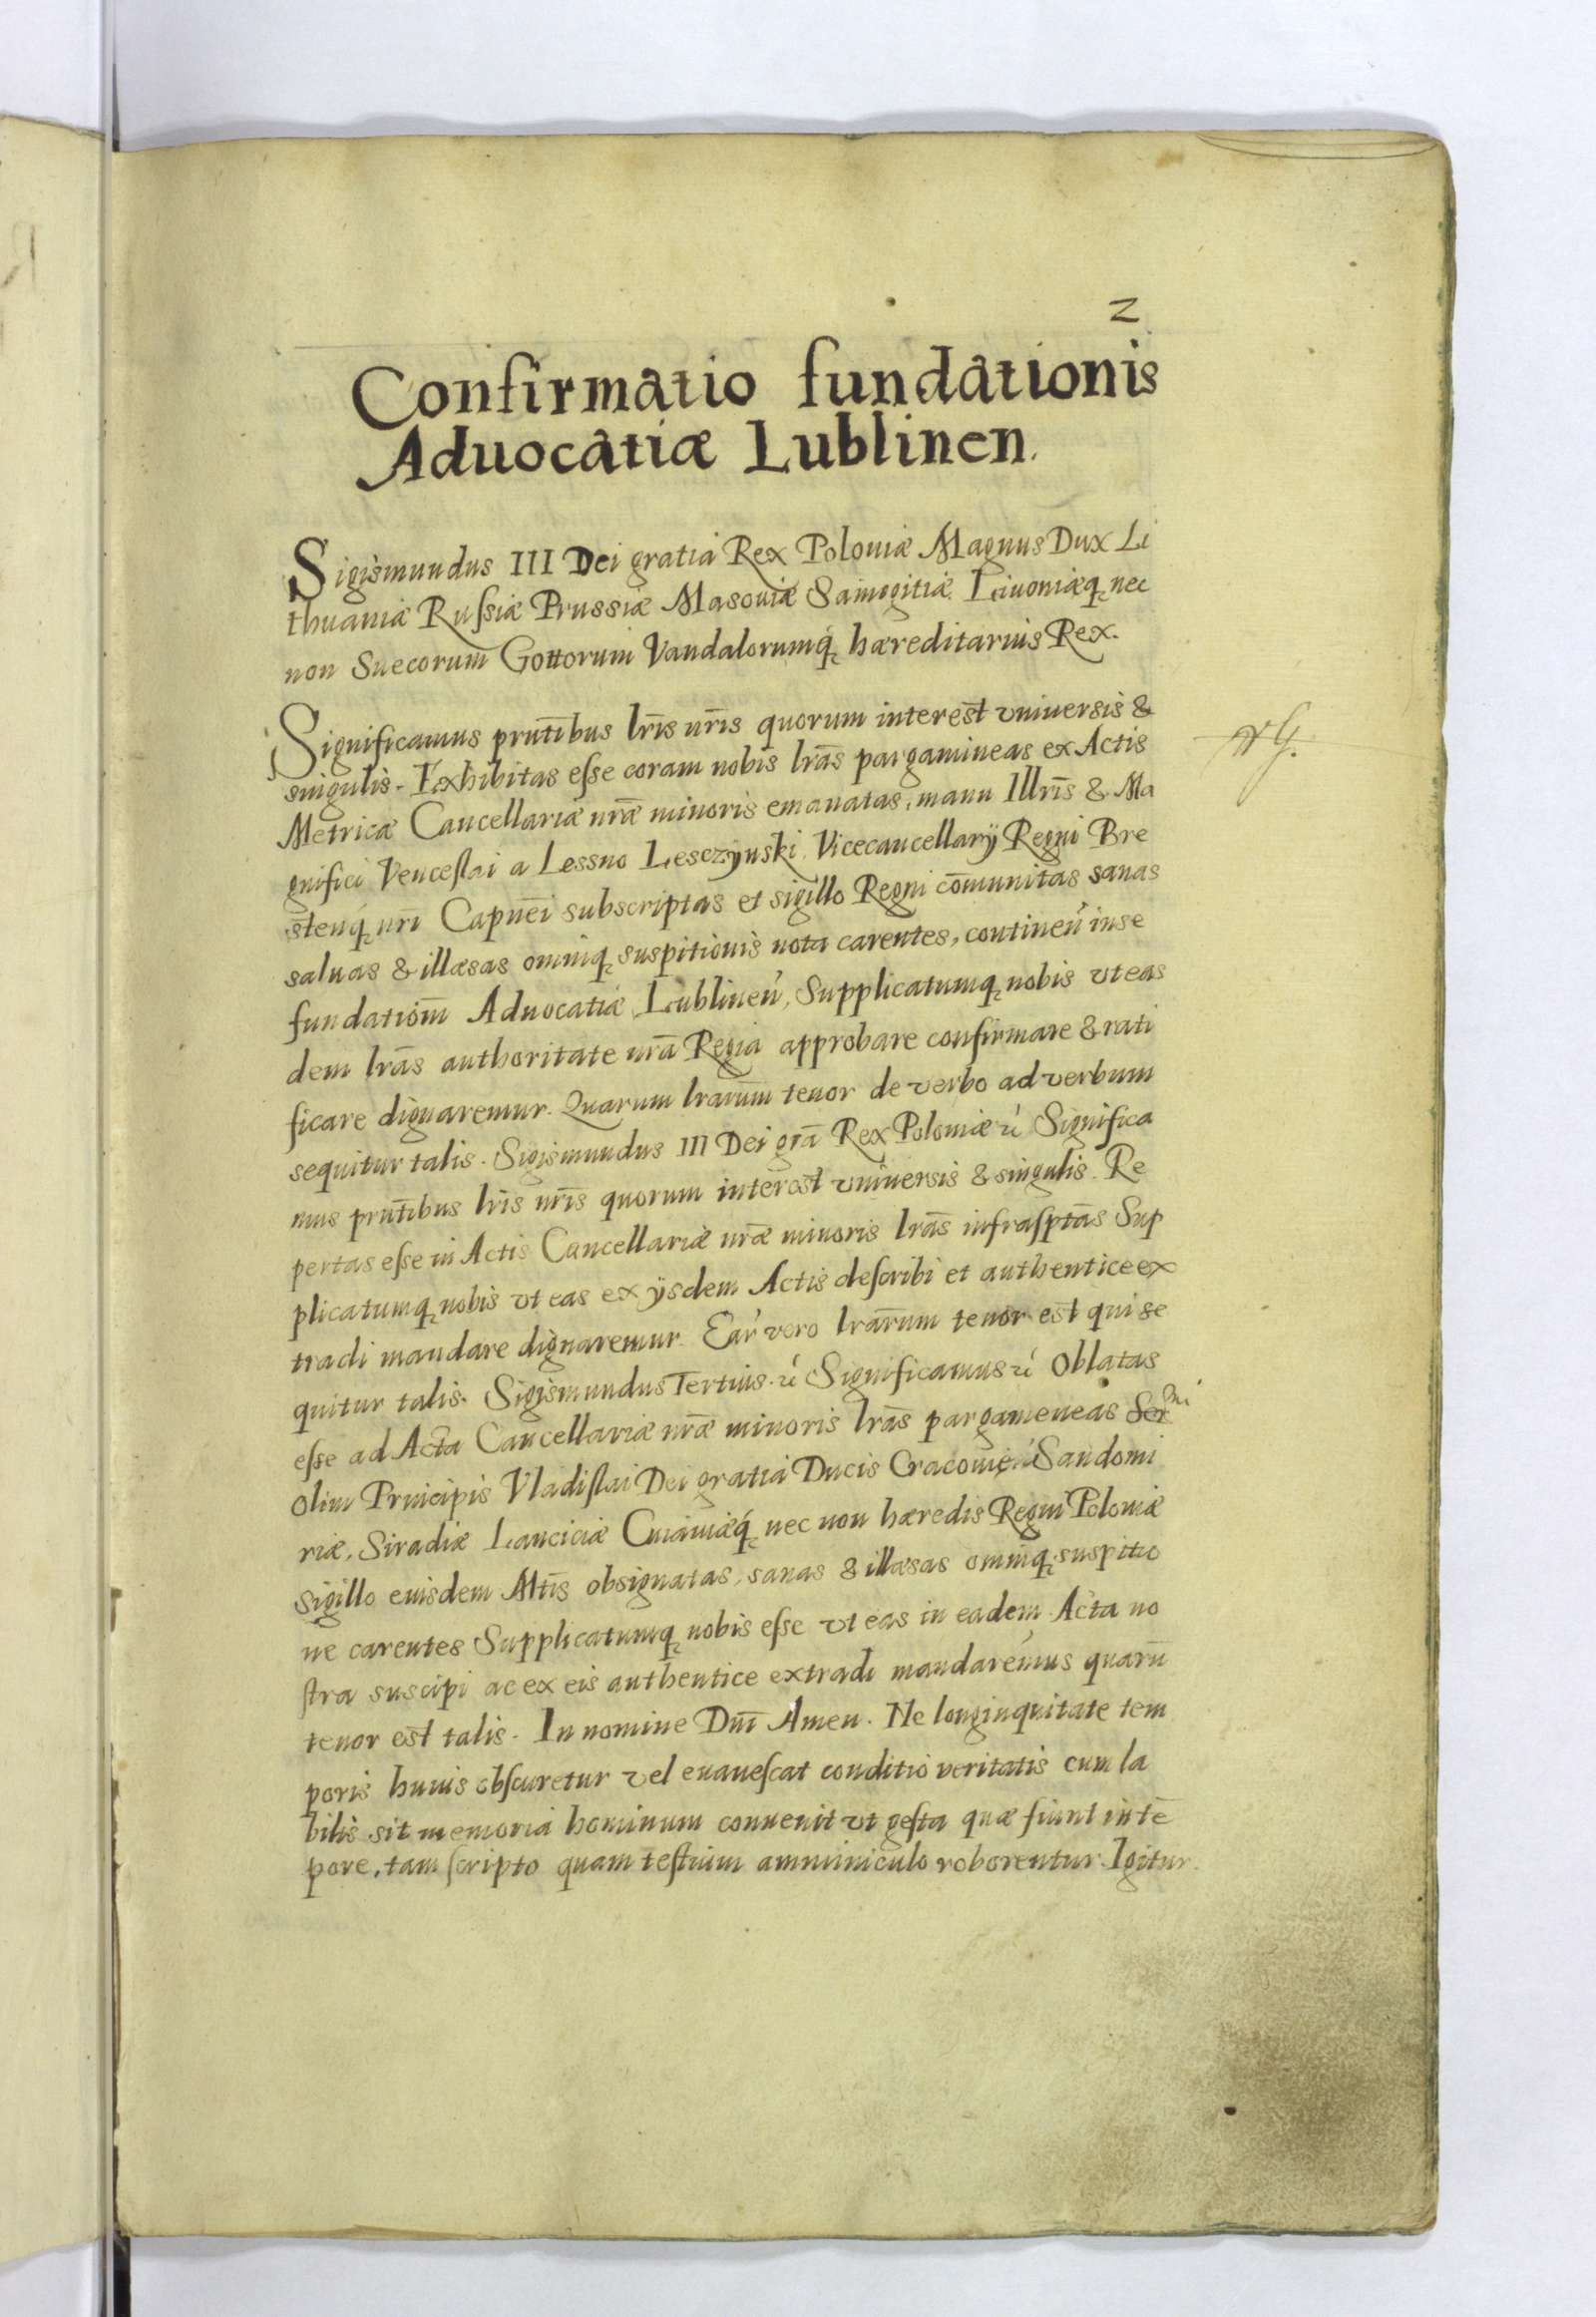 2
Confirmâtio fundâtionis
Aduocâtiæ Lublinen.
Sigismundus III Dei gratia Rex Poloniæ Magnus Dux Li
thuaniæ Rufsiæ Prussiæ Masouiæ Samogitiæ Liuoniæq̨ nec
non Suecorum Gottorum Vandalorumq̨ hæreditarius Rex.
Significamus pru̅tibus lr̅is nr̅is quorum interest vniuersis &
singulis. Exhibitas efse coram nobis lra̅s pargamineas ex Actis
Metricæ Cancellariæ nr̅æ minoris emanatas, manu Illr̅is & Ma
gnifici Venceslai a Lessno Lesczynski Vicecancellarÿ Regni Bre
stenq̨ nri̅ Capne̅i subscriptas et sigillo Regni co̅munitas sanas
saluas & illæsas omniq̨ suspitionis nota carentes, continen̉ in se
fundatio̅m Aduocatiæ Lublinen̉, Supplicatumq̨ nobis vt eas
dem lra̅s authoritate nra̅ Regia approbare confirmare & rati
ficare dignaremur. Quarum lraru̅m tenor de verbo ad verbum
sequitur talis. Sigismundus III Dei gra̅ Rex Poloniæ rć Significa
mus prut̅ibus lri̅s nri̅s quorum interest vniuersis & singulis. Re
pertas efse in Actis Cancellariæ nr̅æ minoris lra̅s infrasptas̅ Sup
plicatumq̨ nobis vt eas ex ÿsdem Actis describi et authentice ex
tradi mandare dignaremur. Ear̉ vero lrar̅um tenor est qui se
quitur talis. Sigismundus Tertius. rć Significamus rć Oblatas
efse ad Acta Cancellariæ nr̅æ minoris lra̅s pargameneas Ser
olim Principis Vladislai Dei gratia Ducis Cracouię Sandomi
riæ, Siradiæ Lanciciæ Cuiauiæq̨ nec non hæredis Regni Poloniæ
sigillo eiusdem Mti̅s obsignatas, sanas & illæsas omniq̨ suspitio
ne carentes Supplicatumq̨ nobis efse vt eas in eadem Acta no
stra suscipi ac ex eis authentice extradi mandaremus quaru̅
tenor est talis. In nomine Dni̅ Amen. Ne longinquitate tem
poris huius obscuretur vel euanescat conditio veritatis cum la
bilis sit memoria hominum conuenit vt gesta quæ fiunt in te̅
pore, tam scripto quam testium amminiculo roborentur. Igitur